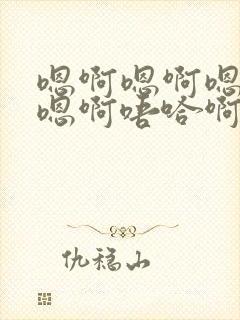 嗯啊嗯啊嗯
嗯啊唔哈啊
仇稳山